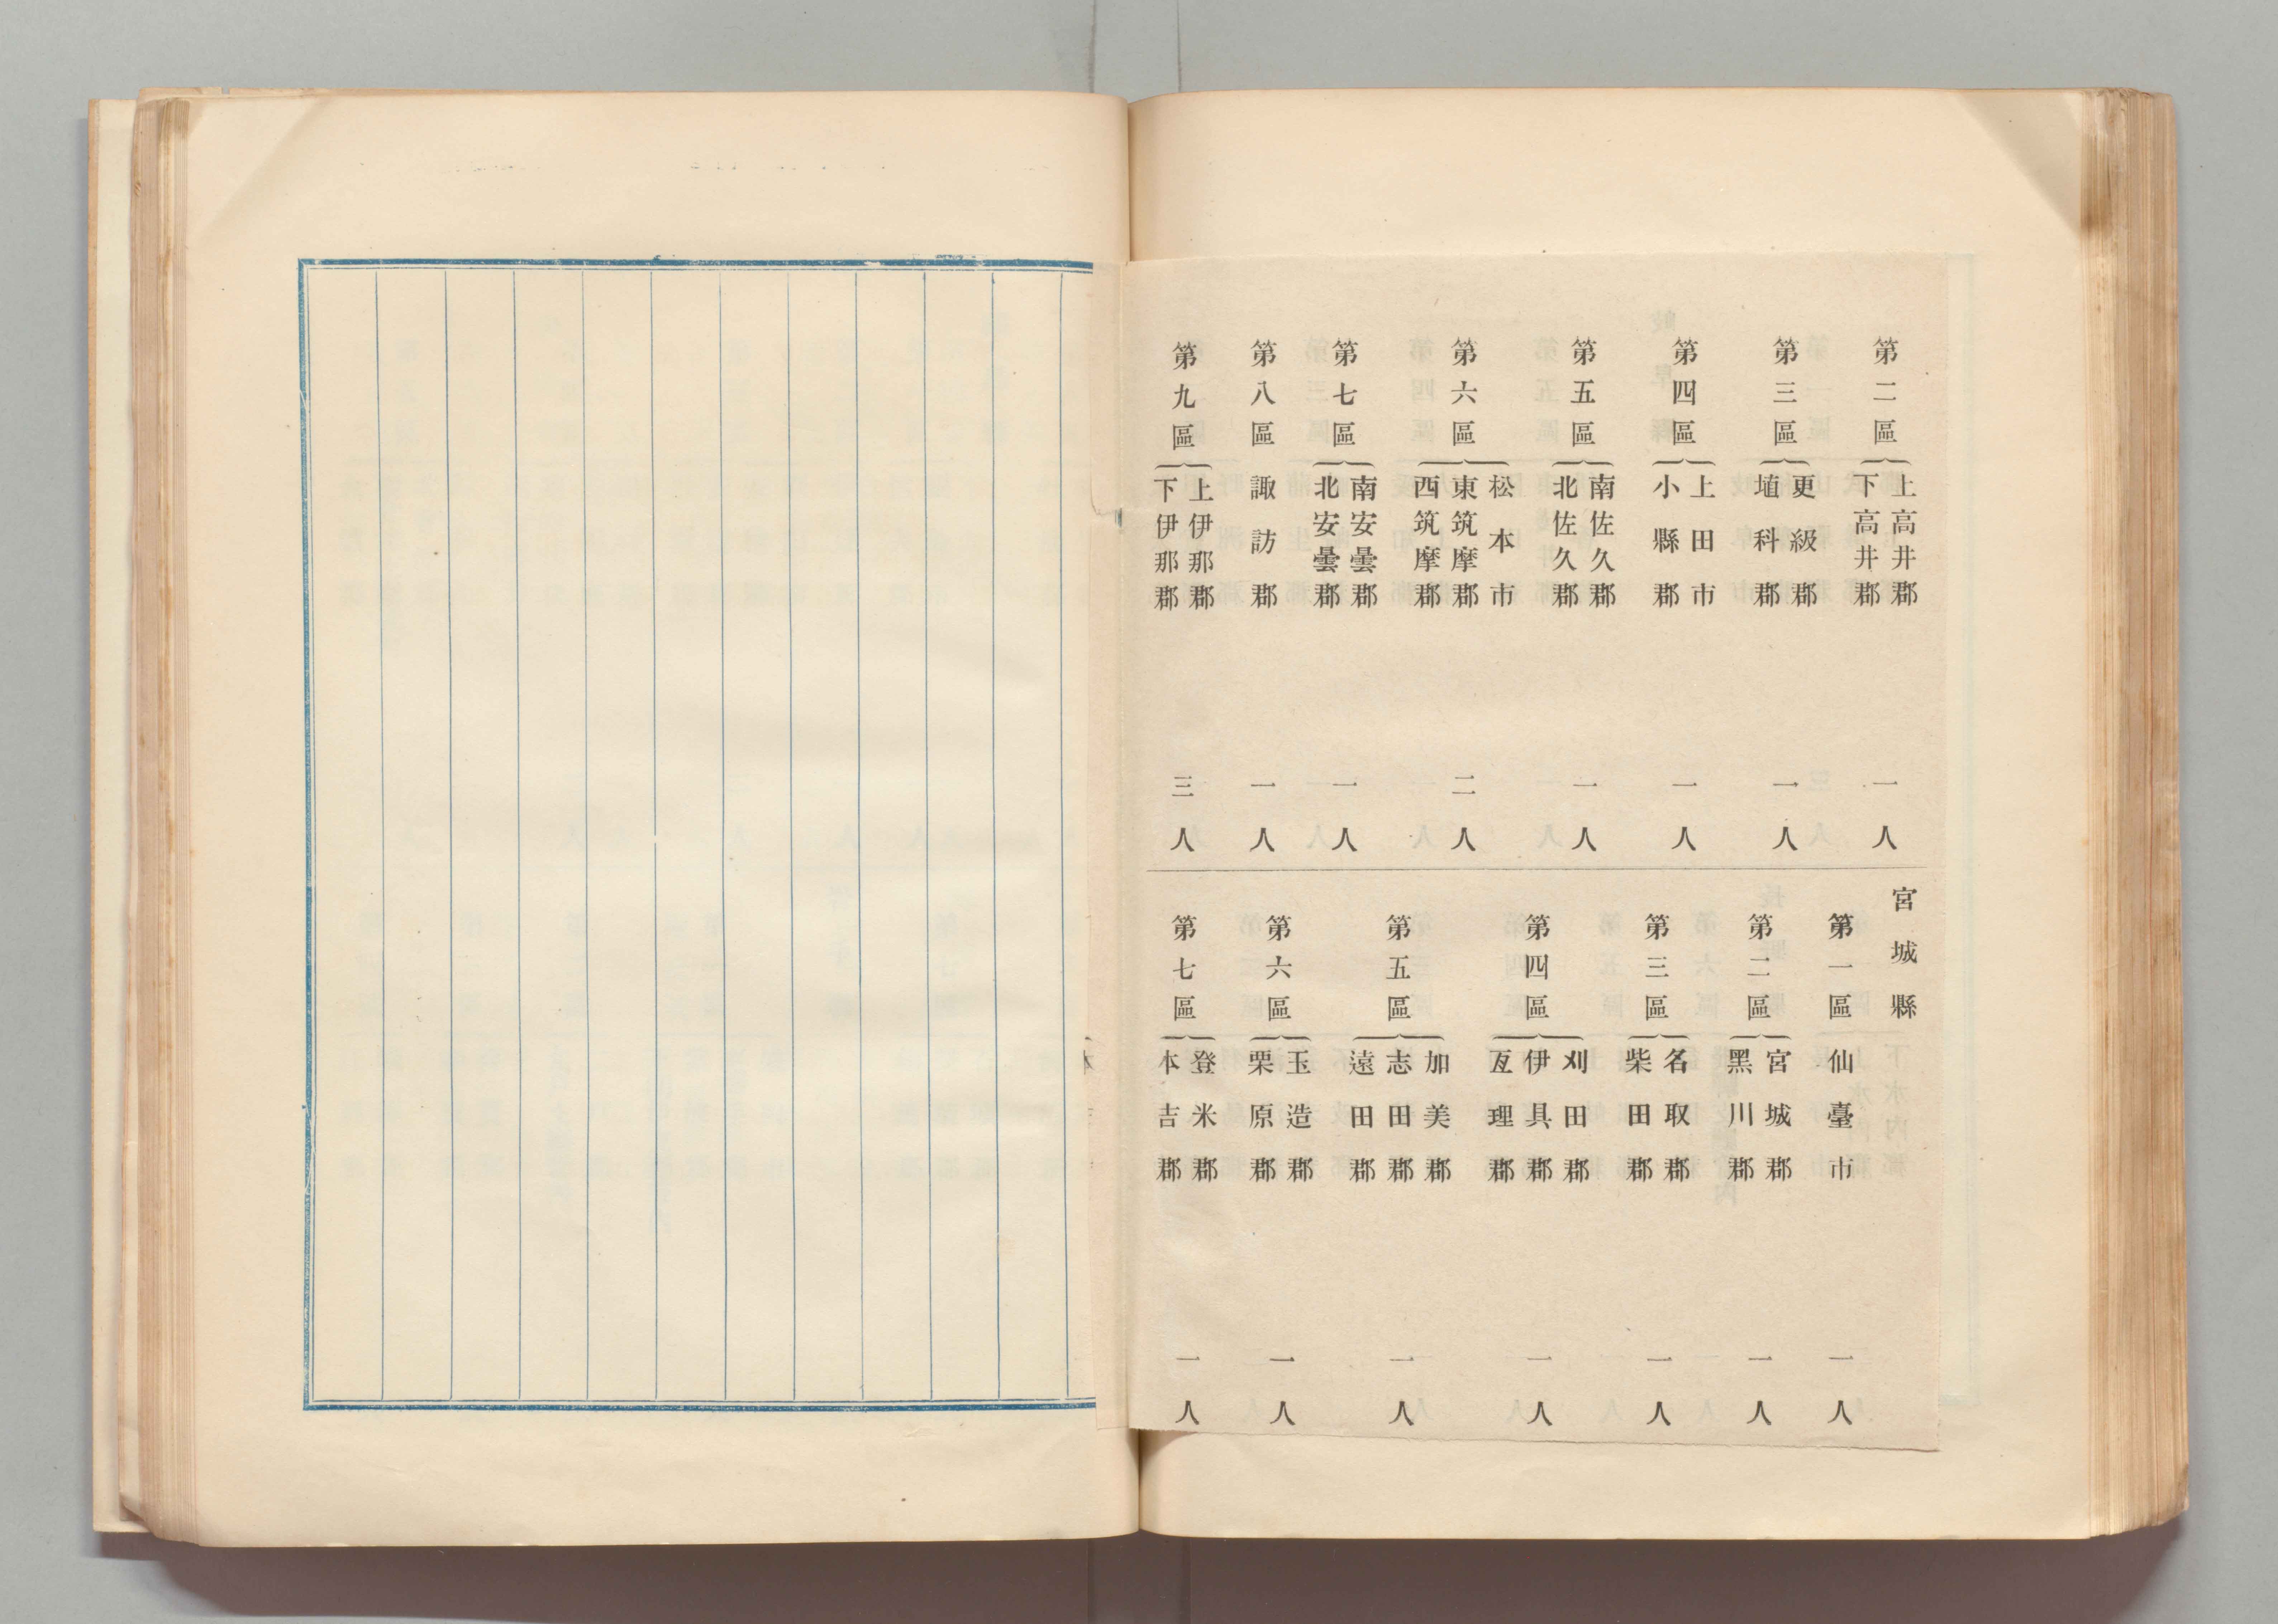 第二區
上高井郡
下高井郡
一人
第三區
更級郡
埴科郡
一人
第四區
上田市
小縣郡
一人
第五區
南佐久郡
北佐久郡
一人
第六區
松本市
東筑摩郡
西筑摩郡
二人
第七區
南安曇郡
北安曇郡
一人
第八區
諏訪郡
一人
第九區
上伊那郡
下伊那郡
三人
宮城縣
第一區
仙臺市
一人
第二區
宮城郡
黑川郡
一人
第三區
名取郡
柴田郡
一人
第四區
刈田郡
伊具郡
亙理郡
一人
第五區
加美郡
志田郡
遠田郡
一人
第六區
玉造郡
栗原郡
一人
第七區
登米郡
本吉郡
一人